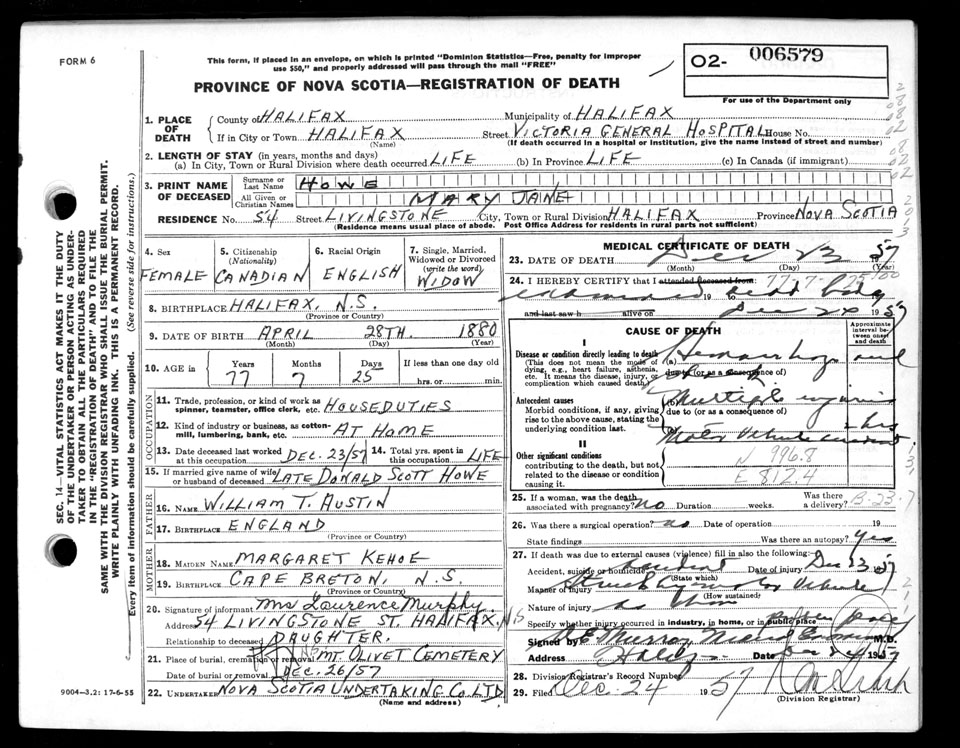 FORM 6
This form, if placed in an envelope, on which is printed "Dominion Statistics—Free, penalty for improper
use $50," and properly addressed will pass through the mail "FREE"
O2- 006579
For use of the Department only
PROVINCE OF NOVA SCOTIA—REGISTRATION OF DEATH
1. PLACE OF DEATH
County of HALIFAX Municipality of HALIFAX
If in City or Town HALIFAX Street VICTORIA GENERAL HOSPITAL House No.
(Name) (If death occurred in a hospital or institution, give the name instead of street and number)
2. LENGTH OF STAY (in years, months and days)
(a) In City, Town or Rural Division where death occurred LIFE (b) In Province LIFE (c) In Canada (if immigrant)
3. PRINT NAME OF DECEASED
Surname or Last Name HOWE
All Given or Christian Names MARY JANE
RESIDENCE No. 54 Street LIVINGSTONE City, Town or Rural Division HALIFAX Province NOVA SCOTIA
(Residence means usual place of abode. Post Office Address for residents in rural parts not sufficient)
4. Sex FEMALE
5. Citizenship (Nationality) CANADIAN
6. Racial Origin ENGLISH
7. Single, Married, Widowed or Divorced (write the word) WIDOW
8. BIRTHPLACE HALIFAX, N.S.
(Province or Country)
9. DATE OF BIRTH APRIL 28TH. 1880
(Month) (Day) (Year)
10. AGE in Years Months Days If less than one day old
77 7 25 hrs. or min.
OCCUPATION
11. Trade, profession, or kind of work as
spinner, teamster, office clerk, etc. HOUSEDUTIES
12. Kind of industry or business, as cotton-
mill, lumbering, bank, etc. AT HOME
13. Date deceased last worked at this occupation DEC. 23/57 14. Total yrs. spent in this occupation LIFE
15. If married give name of wife
or husband of deceased LATE DONALD SCOTT HOWE
FATHER
16. NAME WILLIAM T. AUSTIN
17. BIRTHPLACE ENGLAND
(Province or Country)
MOTHER
18. MAIDEN NAME MARGARET KEHOE
19. BIRTHPLACE CAPE BRETON, N.S.
(Province or Country)
20. Signature of informant Mrs Laurence Murphy.
Address 54 LIVINGSTONE ST. HALIFAX. N.S
Relationship to deceased DAUGHTER.
21. Place of burial, cremation or removal MT. OLIVET CEMETERY
Date of burial or removal DEC. 26/57
22. UNDERTAKER NOVA SCOTIA UNDERTAKING CO. LTD
(Name and address)
9004-3,2: 17-6-55
SEC. 14—VITAL STATISTICS ACT MAKES IT THE DUTY
OF THE UNDERTAKER OR PERSON ACTING AS UNDER-
TAKER TO OBTAIN ALL THE PARTICULARS REQUIRED
IN THE "REGISTRATION OF DEATH" AND TO FILE THE
SAME WITH THE DIVISION REGISTRAR WHO SHALL ISSUE THE BURIAL PERMIT.
WRITE PLAINLY WITH UNFADING INK. THIS IS A PERMANENT RECORD.
Every item of information should be carefully supplied. (See reverse side for instructions.)
MEDICAL CERTIFICATE OF DEATH
23. DATE OF DEATH Dec 23 57
(Month) (Day) (Year)
24. I HEREBY CERTIFY that I attended deceased from:
examined 19 to dead body
and last saw h alive on Dec 24 1957
CAUSE OF DEATH
Approximate interval between onset and death
I
Disease or condition directly leading to death (a) Hemorrhage and
(This does not mean the mode of dying, e.g., heart failure, asthenia, etc. It means the disease, injury, or complication which caused death.)
due to (or as a consequence of) shock
Antecedent causes
Morbid conditions, if any, giving rise to the above cause, stating the underlying condition last.
Multiple injuries
due to (or as a consequence of)
Motor Vehicle accident
II
Other significant conditions
contributing to the death, but not related to the disease or condition causing it.
N 996.8
E 812.4
25. If a woman, was the death
associated with pregnancy? no Duration weeks. Was there a delivery?
26. Was there a surgical operation? no Date of operation 19
State findings Was there an autopsy? yes
27. If death was due to external causes (violence) fill in also the following:
Accident, suicide or homicide accident Date of injury Dec 23 57
(State which)
Manner of injury Struck by motor Vehicle
(How sustained)
Nature of injury
Specify whether injury occurred in industry, in home, or in public place public place
Signed by Murray Medical Examiner M.D.
Address Halifax Date Dec 24 1957
28. Division Registrar's Record Number
29. Filed Dec. 24 1957
(Division Registrar)